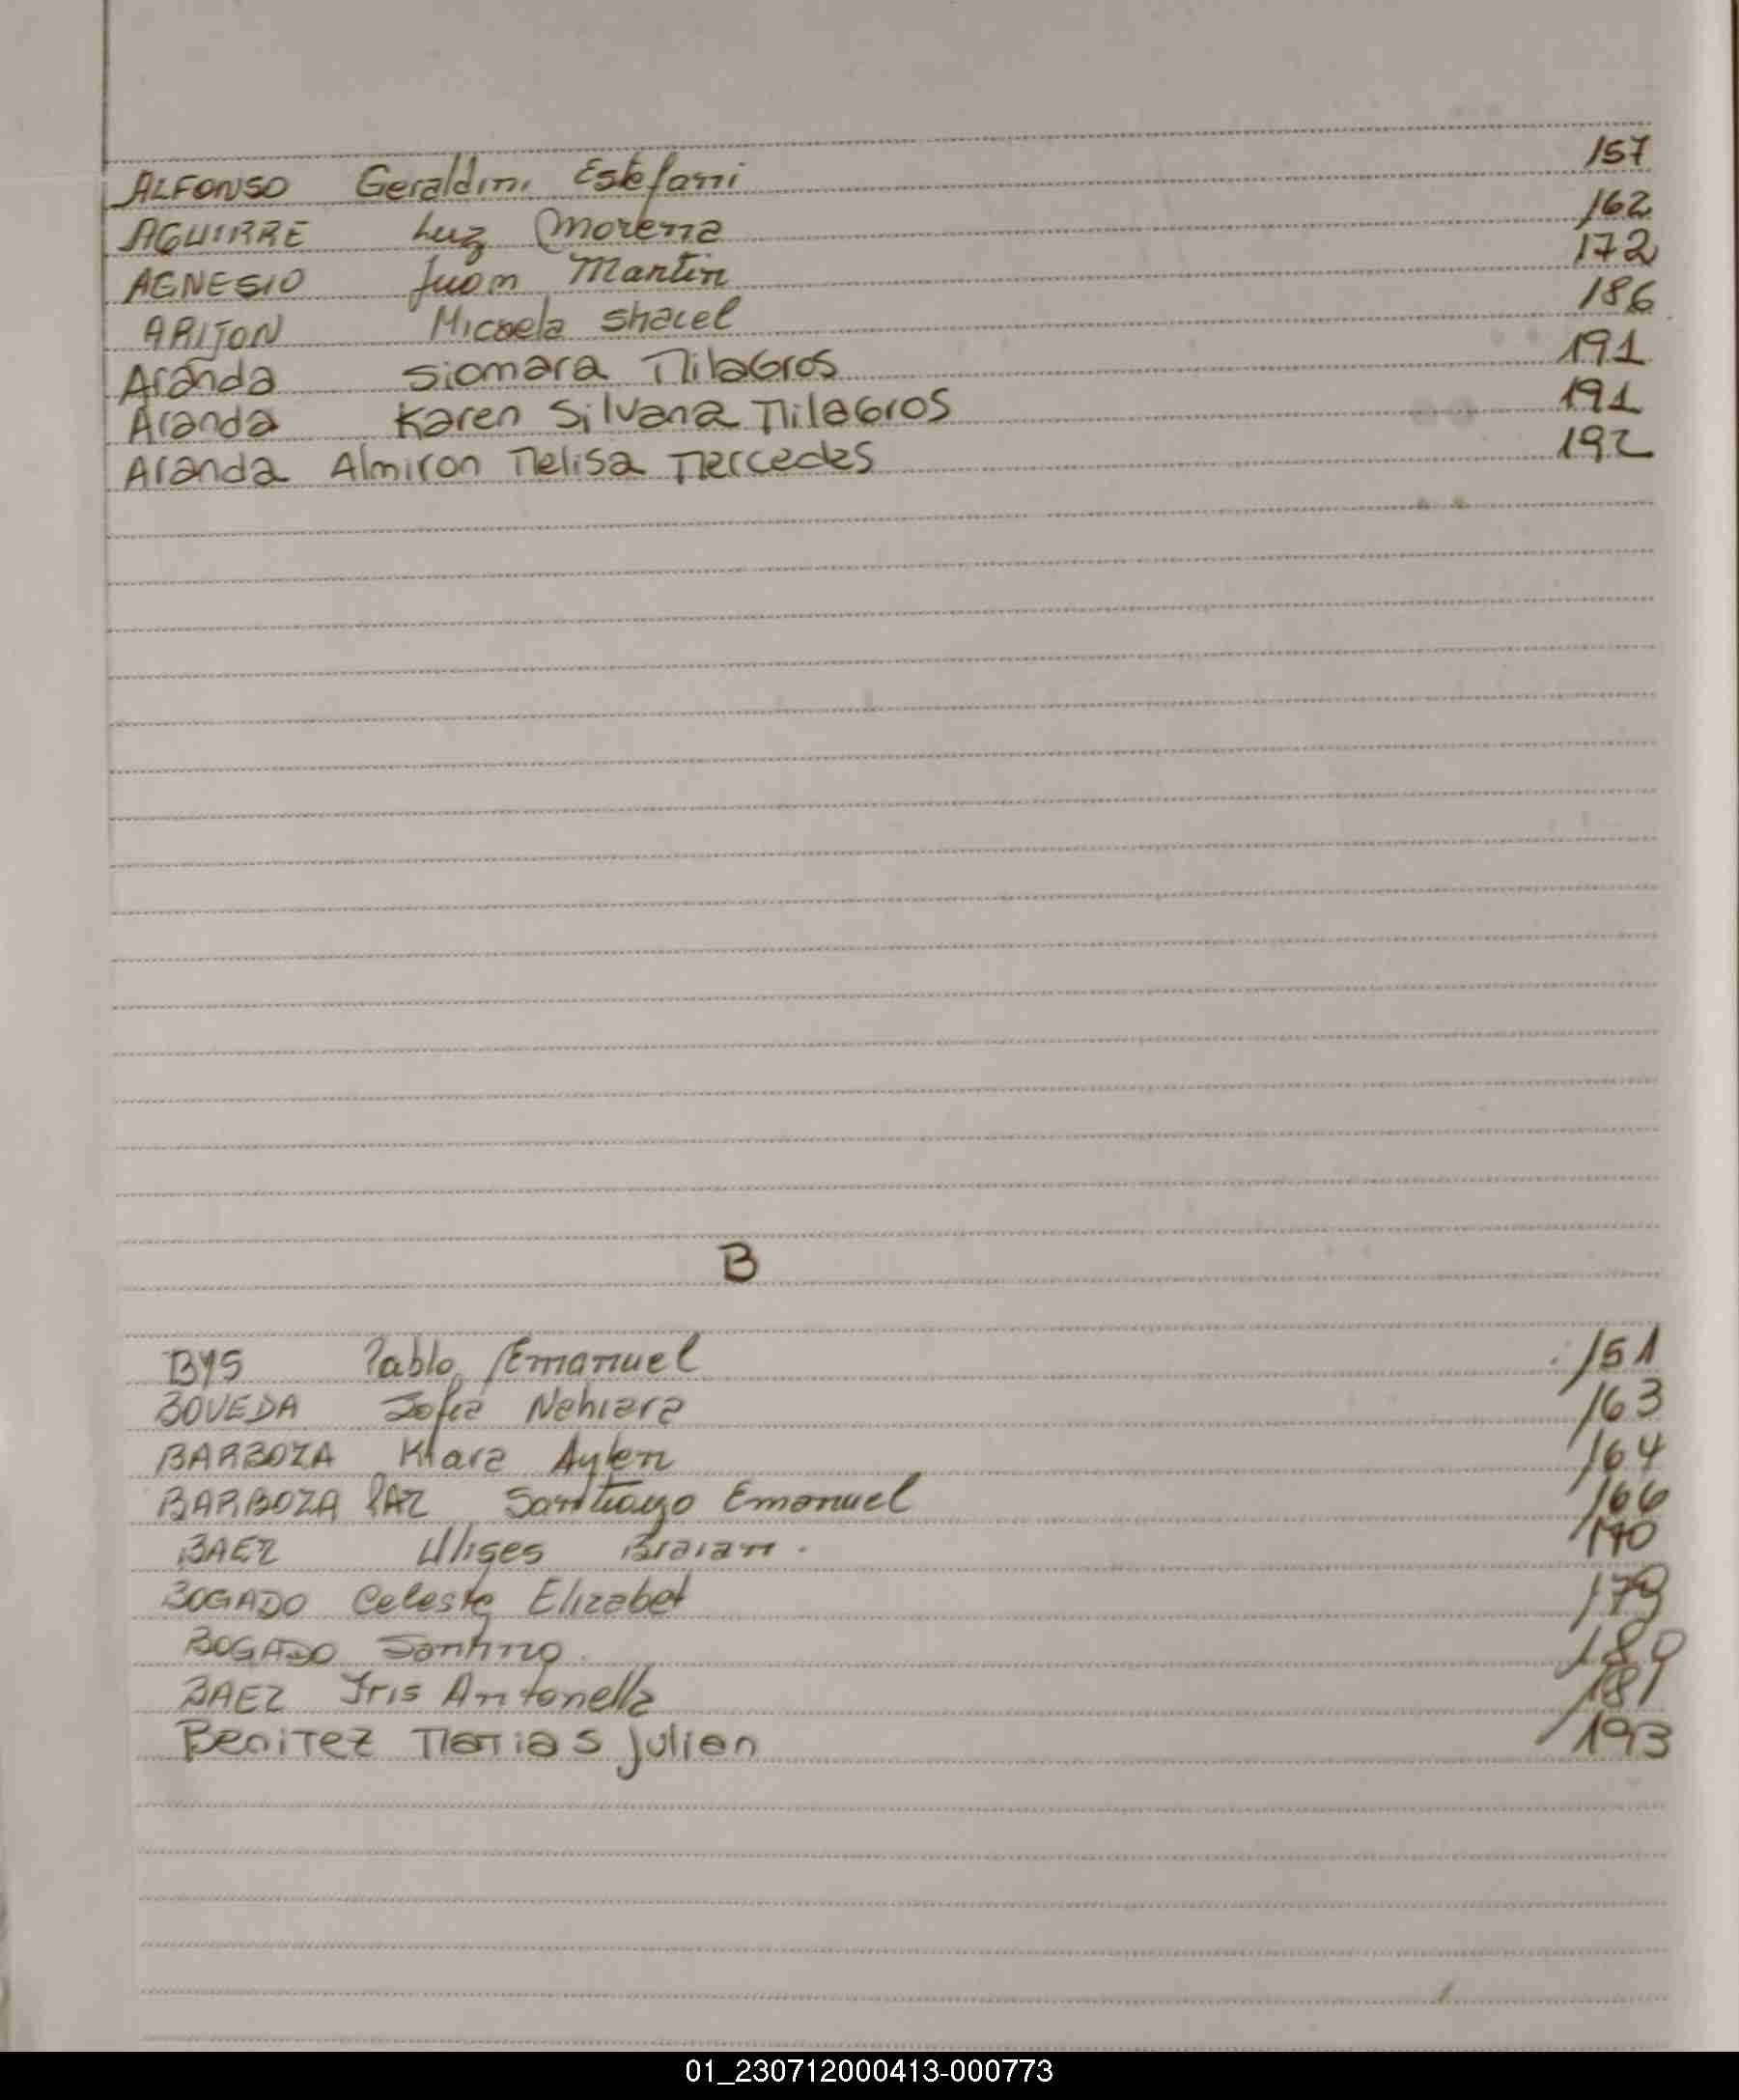 ALFONSO Geraldini Estefani 157
AGUIRRE Luz Morena 162
AGNESIO Juan Martin 172
ARIJON Micaela Shacel 186
Aranda Siomara Milagros 191
Aranda Karen Silvana Milagros 191
Aranda Almiron Melisa Mercedes 192
B
BYS Pablo Emanuel 151
BOVEDA Sofia Nahiara 163
BARBOZA Kiara Aylen 164
BARBOZA PAZ Santiago Emanuel 166
BAEZ Ulises Braian. 170
BOGADO Celeste Elizabet 179
BOGADO Santino. 180
BAEZ Iris Antonella 181
Benitez Matias Julian 193
01_230712000413-000773